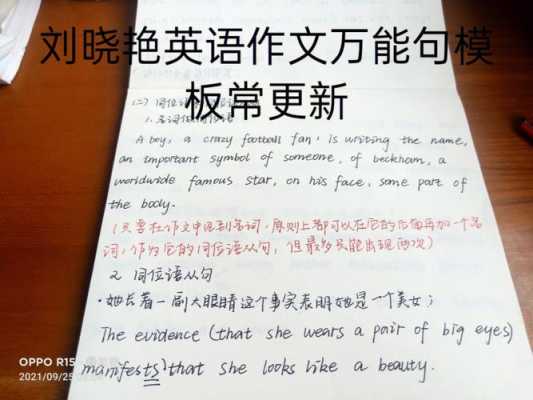 刘晓艳英语作文万能句模
板常更新
(二) 同位语
1. 名词作同位语
A boy, a crazy football fan, is writing the name,
an important symbol of someone, of beckham, a
worldwide famous star, on his face, some part of
the body.
(只要在作文中见到名词,原则上都可以在它的后面再加一个名
词,作为它的同位语从句,但最多只能出现两次)
2. 同位语从句
·她长着一副大眼睛这个事实表明她是一个美女;
The evidence (that she wears a pair of big eyes)
manifests that she looks like a beauty.
OPPO R15
2021/09/25